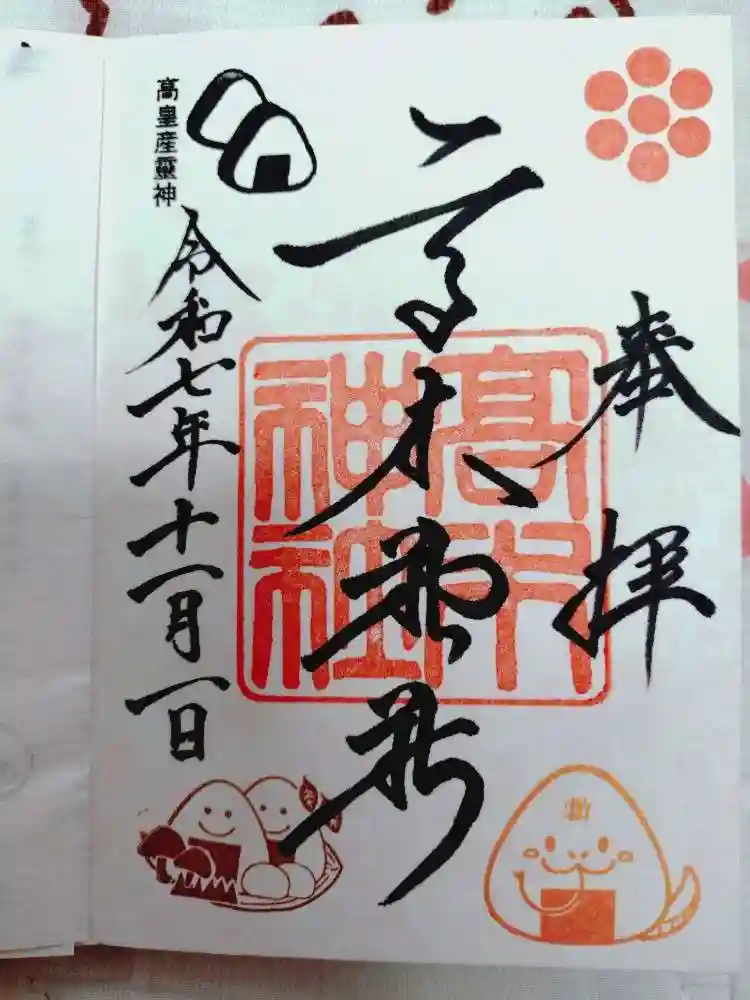 奉拝
高木神社
高木神社
高皇産靈神
令和七年十一月一日